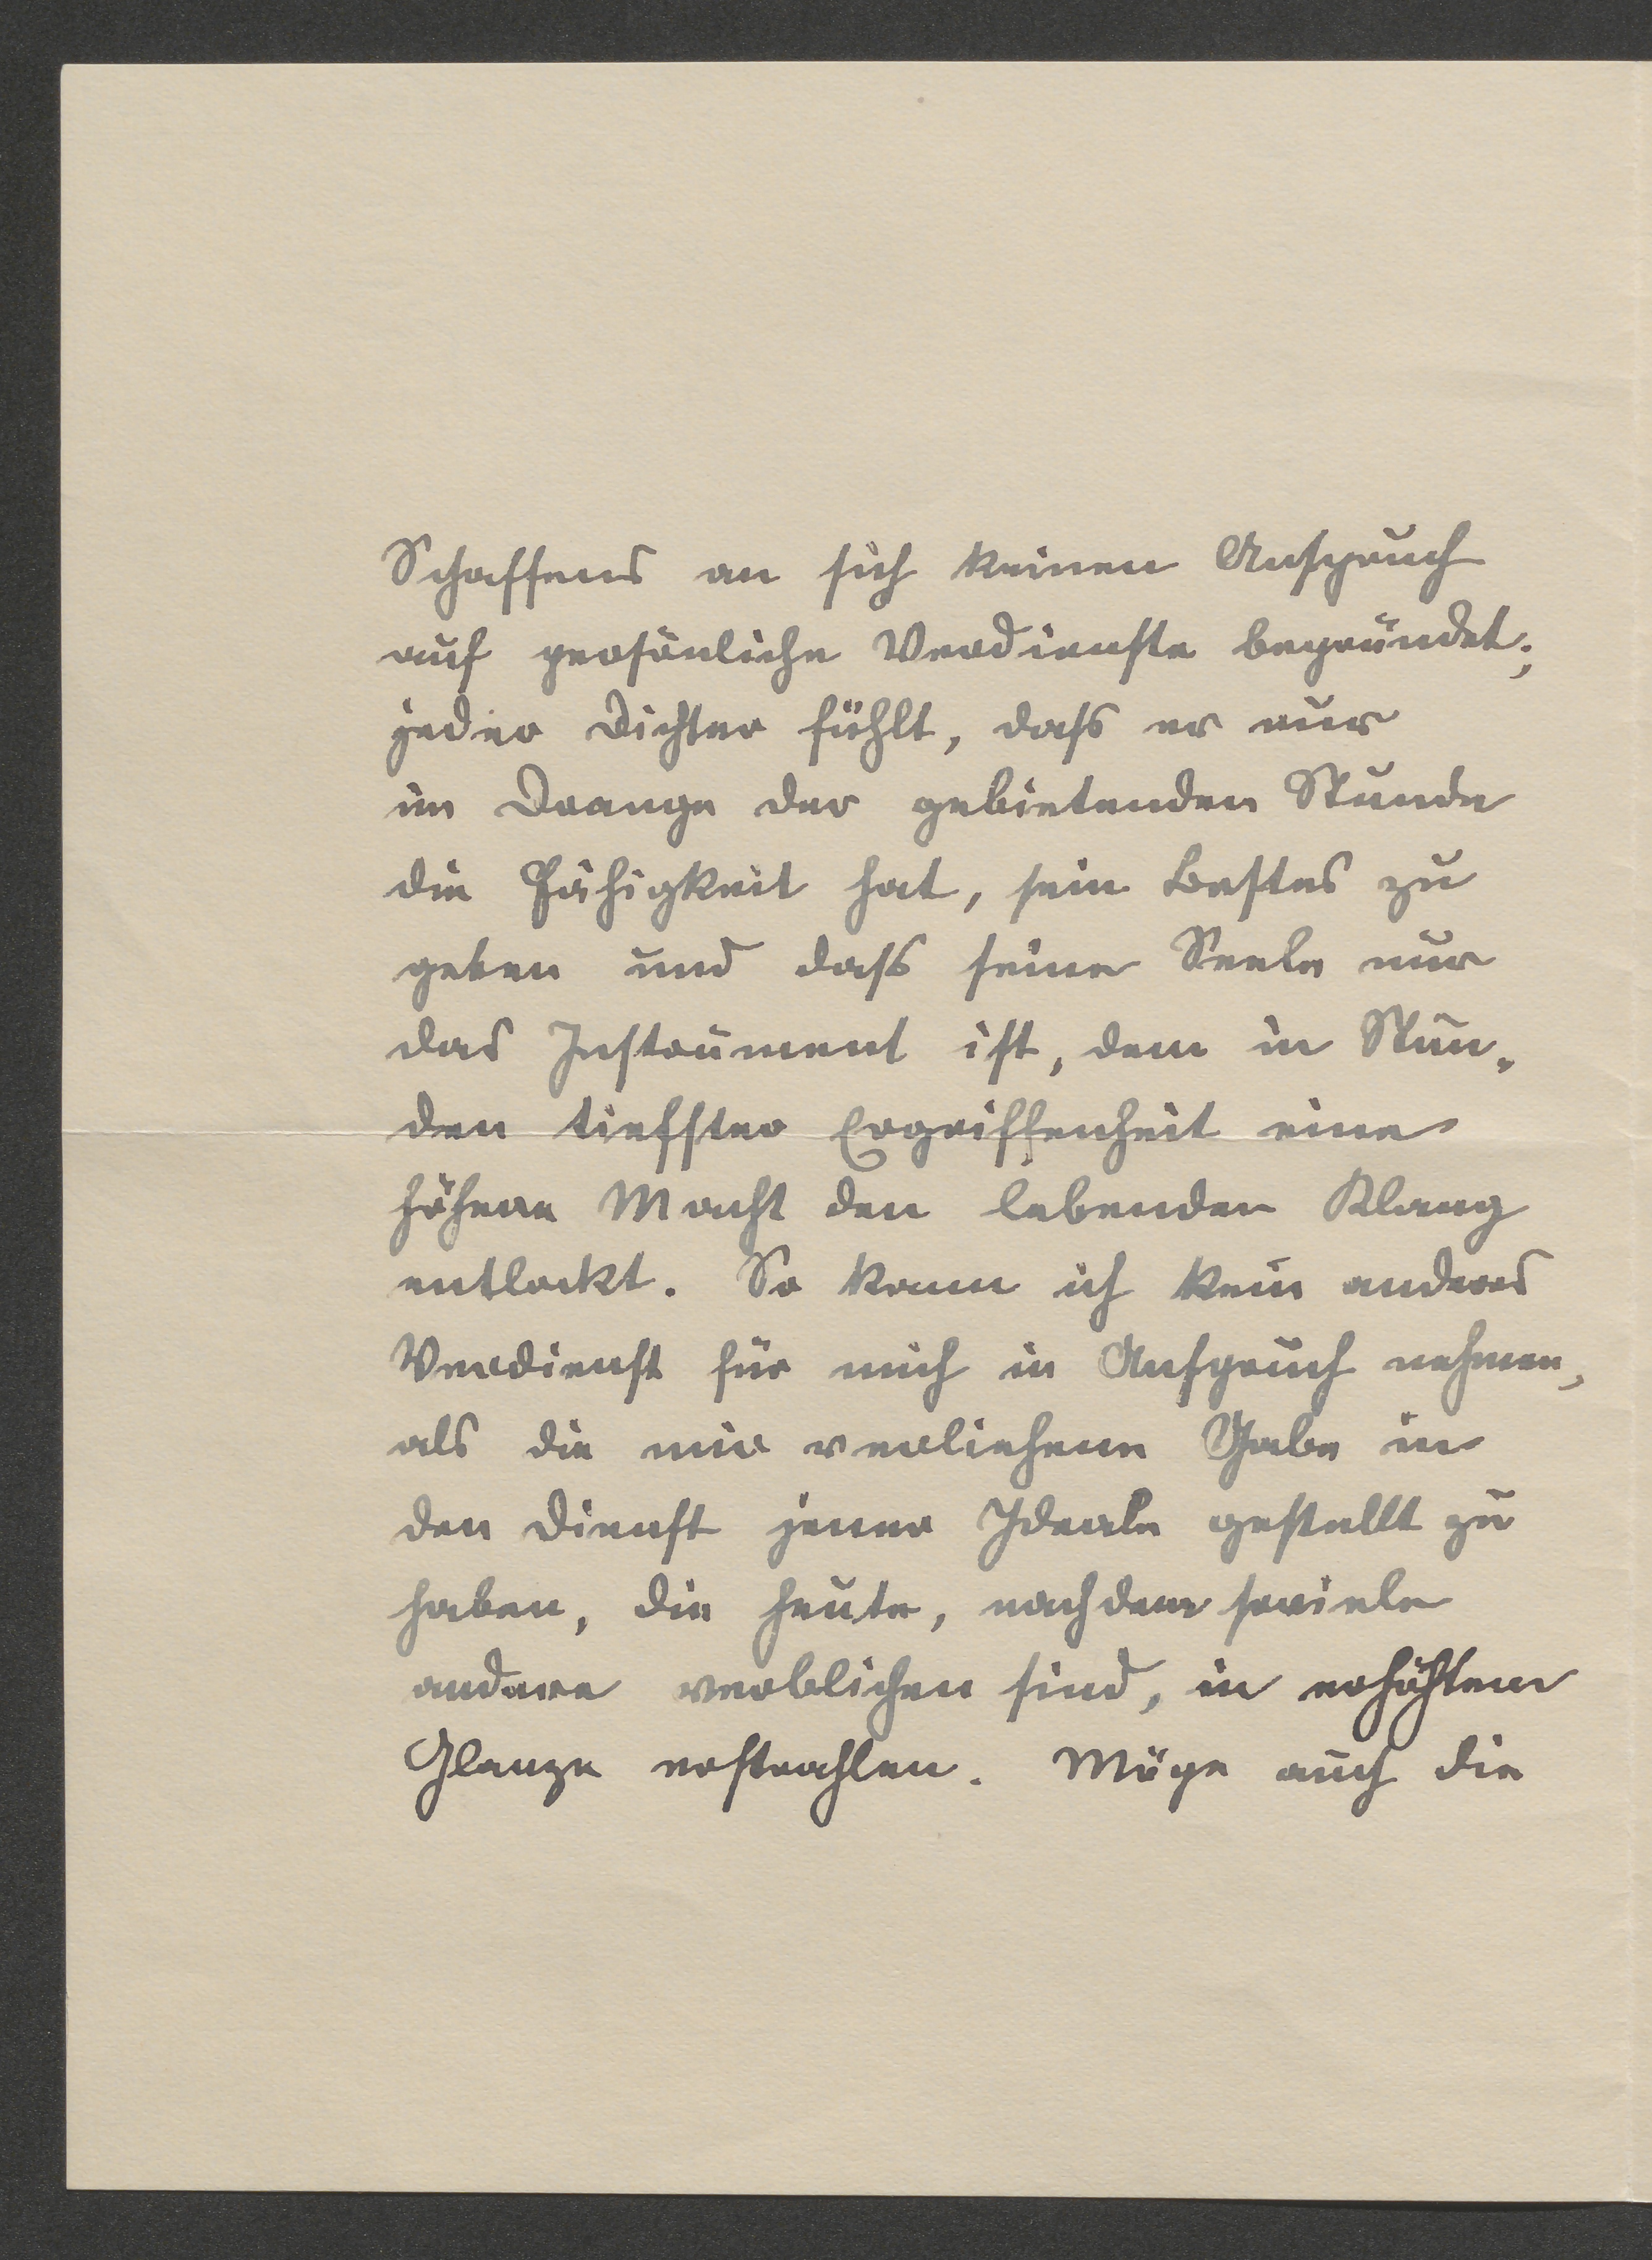 Schaffens an sich keinen Anspruch
auf persönliche Verdienste begründet;
jeder Dichter fühlt, dass er nur
im Drange der gebietenden Stunde
die Fähigkeit hat, sein Bestes zu
geben und dass seine Seele nur
das Instrument ist, dem in Stun-
den tiefster Ergriffenheit eine
höhere Macht den lebenden Klang
entlockt. So kann ich kein anderes
Verdienst für mich in Anspruch nehmen,
als die mir verliehene Gabe in
den Dienst jener Ideale gestellt zu
haben, die heute, nachdem soviele
andere verblichen sind, in erhöhtem
Glanze erstrahlen. Möge auch die